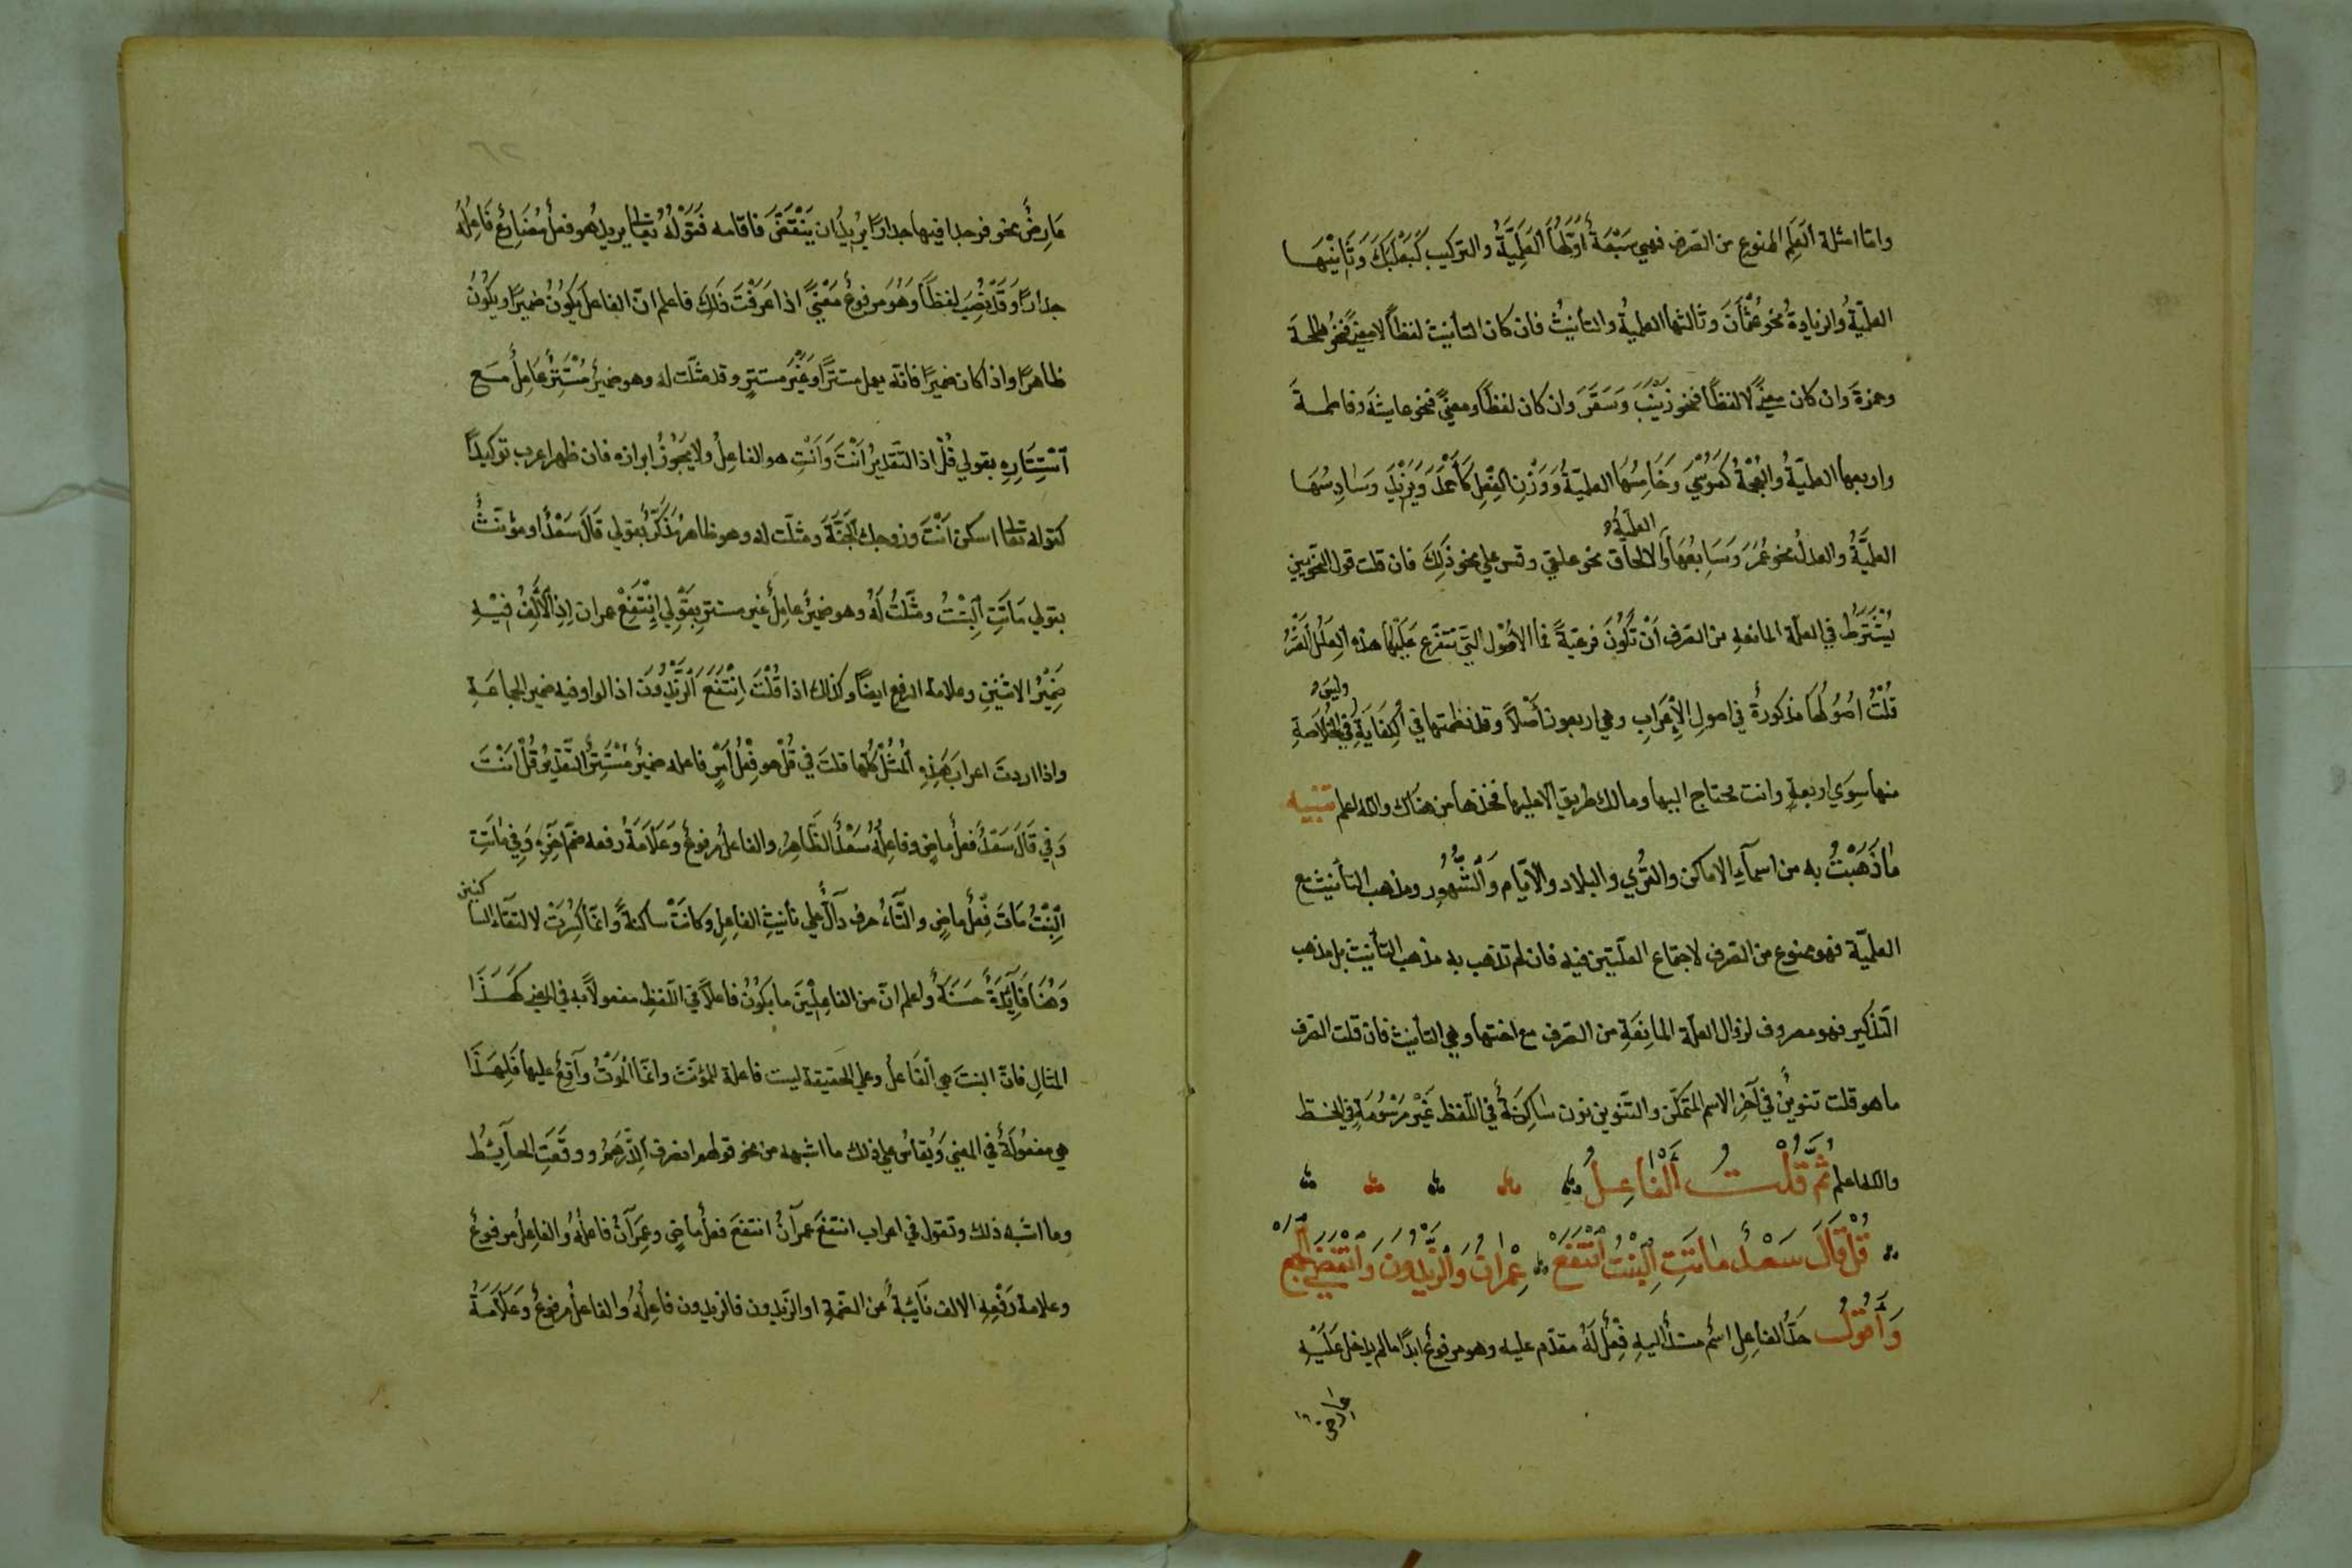 واما امثلة العلم الممنوع من الصرف فهي سبعة اولها العلمية والتركيب كبعلبك وثانيها
العلمية والزيادة نحو عثمان وثالثها العلمية والتأنيث فان كان التأنيث لفظا لا معنى فنحو طلحة
وحمزة وان كان معنى لا لفظا فنحو زينب وسقر وان كان لفظا ومعنى فنحو عايشة وفاطمة
واربعها العلمية والعجمة كموسى وخامسها العلمية ووزن الفعل كأحمد ويزيد وسادسها
العلمية والعدل نحو عمر وسابعها العلمية والالحاق نحو علقى وقس على نحو ذلك فان قلت قول النحويين
يشترط في العلة المانعه من الصرف ان تكون فرعية فما الاصول التي تتفرع عليها هذه العلل
قلت اصولها مذكورة في اصول الاعراب وهي اربعون اصلا وقد نظمتها في الكفاية وليس في الخلاصة
منها سوى اربعة وانت محتاج اليها ومالك طريق الا عليها فخذها من هناك والله اعلم تنبيه
ما ذهبت به من اسماء الاماكن والقرى والبلاد والايام والشهور ومذهب التأنيث مع
العلمية فهو ممنوع من الصرف لاجتماع العلتين فيه فان لم تذهب به مذهب التأنيث بل مذهب
التذكير فهو مصروف لزوال العلة المانعة من الصرف مع اختها وهي التأنيث فان قلت الصرف
ما هو قلت تنوين في آخر الاسم المتمكن والتنوين نون ساكنة في اللفظ غير مرسومة في الخط
والله اعلم ثم قلت الفاعل
قل قال سعد ماتت البنت انتفع عمران والزيدون وانقضى الحج
واقول حد الفاعل اسم مسند اليه فعل له مقدم عليه وهو مرفوع ابدا ما لم يدخل عليه
عارض
عارض نحو فوجدا فيها جدارا يريد ان ينقض فاقامه فقوله تعالى يريد هو فعل مضارع فاعله
جدارا وقد نصب لفظا وهو مرفوع معنى اذا عرفت ذلك فاعلم ان الفاعل يكون ضميرا ويكون
ظاهرا واذا كان ضميرا فانه يعمل مستترا وغير مستتر وقد مثلت له وهو ضمير مستتر عامل مع
استتاره بقولي قل اذ التقدير انت وانت هو الفاعل ولا يجوز ابرازه فان ظهر اعرب توكيدا
كقوله تعالى اسكن انت وزوجك الجنة ومثلت له وهو ظاهر مذكر بقولي قال سعد او مؤنث
بقولي ماتت البنت ومثلت له وهو ضمير عامل غير مستتر بقولي انتفع عمران اذ الالف فيه
ضمير الاثنين وعلامة الرفع ايضا وكذلك اذا قلت انتفع الزيدون اذ الواو فيه ضمير الجماعة
واذا اردت اعراب هذه المثل كلها قلت في قل هو فعل امر فاعله ضمير مستتر التقدير قل انت
وفي قال سعد فعل ماض وفاعله سعد الظاهر والفاعل مرفوع وعلامة رفعه ضم اخره وفي ماتت
البنت مات فعل ماض والتاء حرف دال على تأنيث الفاعل وكانت ساكنة وانما كسرت لالتقاء الساكنين
وهنا فايدة حسنة واعلم ان من الفاعلين ما يكون فاعلا في اللفظ مفعولا به في المعنى كهذا
المثال فان البنت هي الفاعل وعلى الحقيقة ليست فاعلة للمؤنث وانما الموت واقع عليها فلهذا
هي مفعولة في المعنى ويقاس على ذلك ما اشبهه من نحو قولهم انصرف الدرهم ووقعت الحايط
وما اشبه ذلك وتقول في اعراب انتفع عمران انتفع فعل ماض وعمران فاعله والفاعل مرفوع
وعلامة رفعه الالف نايبة عن الضمة او الزيدون فالزيدون فاعله والفاعل مرفوع وعلامة